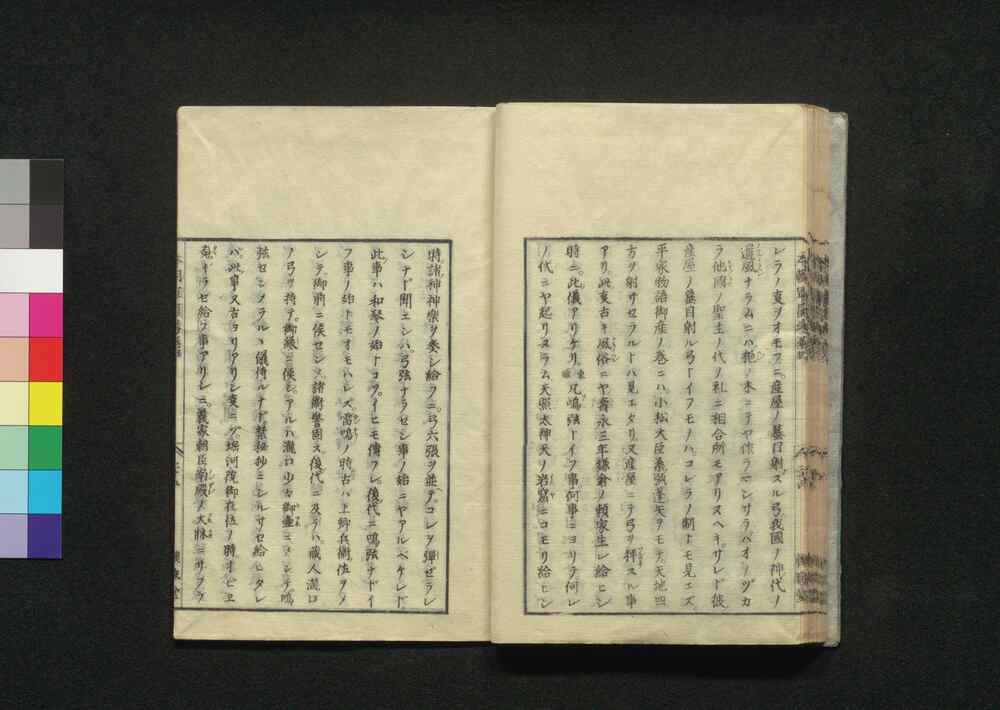 レラノ事ヲオモフニ産屋ノ蟇目射スル弓我國ノ神代ノ
遺風ナラムニハ桃ノ木ニテヤ作ラマシサラハオノヅカ
ラ他國ノ聖主ノ代ノ礼ニ相合所モアリヌヘキサレド彼
産屋ノ蟇目射ル弓トイフモノハコレラノ制トモ見エズ
平家物語御産ノ巻ニハ小松大臣桑弧蓬矢ヲモテ天地四
方ヲ射サセラルトハ見エタリ又産屋ニテ弓ヲ押スル事
アリ此事古キ風俗ニヤ壽永三年鎌倉ノ頼家生レ給ヒシ
時ニ此儀アリケリ 凡鳴弦トイフ事何事ニヨリテ何レ
ノ代ニヤ起リヌラム天照太神天ノ岩窟ニコモリ給ヒシ
時諸神神楽ヲ奏シ給フニ弓六張ヲ並テコレヲ弾ゼラレ
シナド聞エシハ弓弦ナラセシ事ノ始ニヤアルベケレド
此事ハ和琴ノ始トコソイヒモ傳フレ後代ニ鳴弦ナドイ
フ事ノ始トモオモハレズ雷鳴ノ時古ハ上卿兵衛佐ヲメ
シテ御前ニ候セシメ諸衛警固ス後代ニ及テハ蔵人瀧口
ノ弓ヲ持テ御殿ニ候シアルハ瀧口ヲ御壺ニメシテ鳴
弦セシメラルヽ儀侍ルナド禁秘抄ニシルサセ給ヒタレ
バ此事又古ヨリアリシ事ニゾ堀河院御在位ノ時オビヱ
魂ギラセ給フ事アリシニ義家朝臣南殿ノ大床ニサフラ